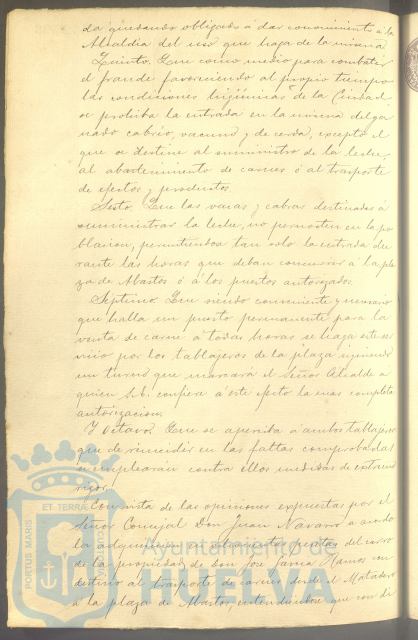 da quedando obligado á dar conocimiento á la
Alcaldia del uso que haga de la misma
Quinto. Que como medio para combatir
el fraude favoreciendo al propio tiempo
las condiciones higiénicas de la Ciudad
se prohiba la entrada en la misma del ga-
nado cabrio, vacuno y de cerda, excepto el
que se destine al suministro de la leche,
al abastecimiento de carnes ó al trasporte
de efectos y productos.
Sesto. Que las vacas y cabras destinadas á
suministrar la leche, no pernocten en la po
blacion, permitiendose tan solo la entrada du
rante las horas que deban concurrir á la pla
za de Abastos ó á los puestos autorizados.
Septimo. Que siendo conveniente y necesario
que halla un puesto permanente para la
venta de carne á todas horas se haga este ser
vicio por los tablajeros de la plaza siguiendo
un turno que marcará el Señor Alcalde a
quien S.E. confiere á este efecto la mas completa
autorizacion.
Y octavo. Que se aperciba á ambos tablajeros
que de reincidir en las faltas comprobadas
se emplearán contra ellos medidas de estremo
rigor.
Con vista de las opiniones expuestas por el
Señor Concejal Don Juan Navarro se acordó
la adquisicion en pesetas del carro
de la propiedad de Don José Garcia Ramos con
destino al trasporte de carnes desde el Matadero
á la plaza de Abastos, entendiendose que con di
PORTUS MARIS ET TERRAE CUSTODIA
Ayuntamiento de
HUELVA